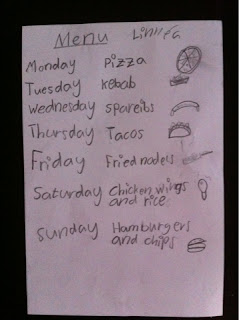 Menu Linnéa
Monday Pizza
Tuesday kebab
Wednesday spareibs
Thursday Tacos
Friday Fried nodels
Saturday Chicken wings
and rice
Sunday Hamburgers
and chips